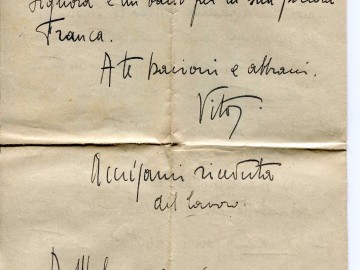 Signora e un bacio per la sua piccola
Franca.
A te bacioni e abbracci.
Vito
Accusami ricevuta
del lavoro.